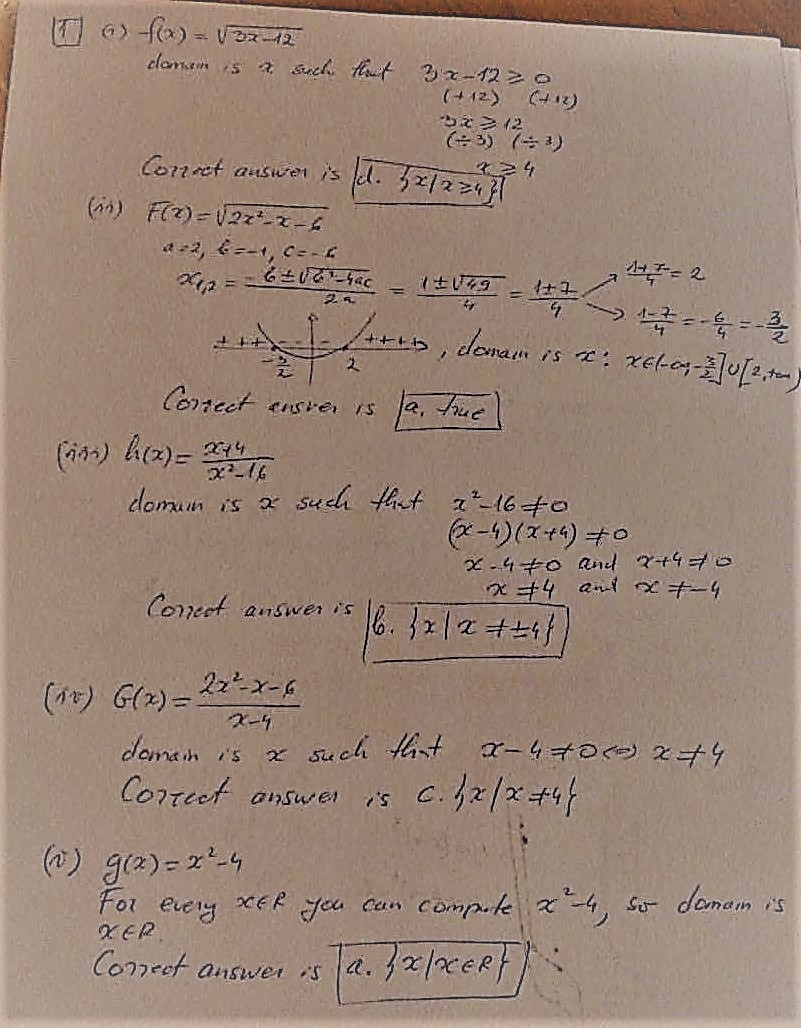 1 (i) f(x) = √3x-12
domain is x such that 3x-12 ≥ 0
(+12) (+12)
3x ≥ 12
(÷3) (÷3)
x ≥ 4
Correct answer is d. {x/x≥4}
(ii) F(x) = √2x²-x-6
a=2, b=-1, c=-6
x₁,₂ = -b±√b²-4ac / 2a = 1±√49 / 4 = 1±7 / 4 → 1+7 / 4 = 2
→ 1-7 / 4 = -6/4 = -3/2
+++ - - - ++++
-3/2 2 , domain is x: x∈(-∞,-3/2]∪[2,+∞)
Correct answer is a. true
(iii) h(x) = x+4 / x²-16
domain is x such that x²-16 ≠ 0
(x-4)(x+4) ≠ 0
x-4≠0 and x+4≠0
x≠4 and x≠-4
Correct answer is b. {x|x≠±4}
(iv) G(x) = 2x²-x-6 / x-4
domain is x such that x-4≠0 ⇔ x≠4
Correct answer is c. {x/x≠4}
(v) g(x) = x²-4
For every x∈R you can compute x²-4, so domain is
x∈R.
Correct answer is a. {x/x∈R}